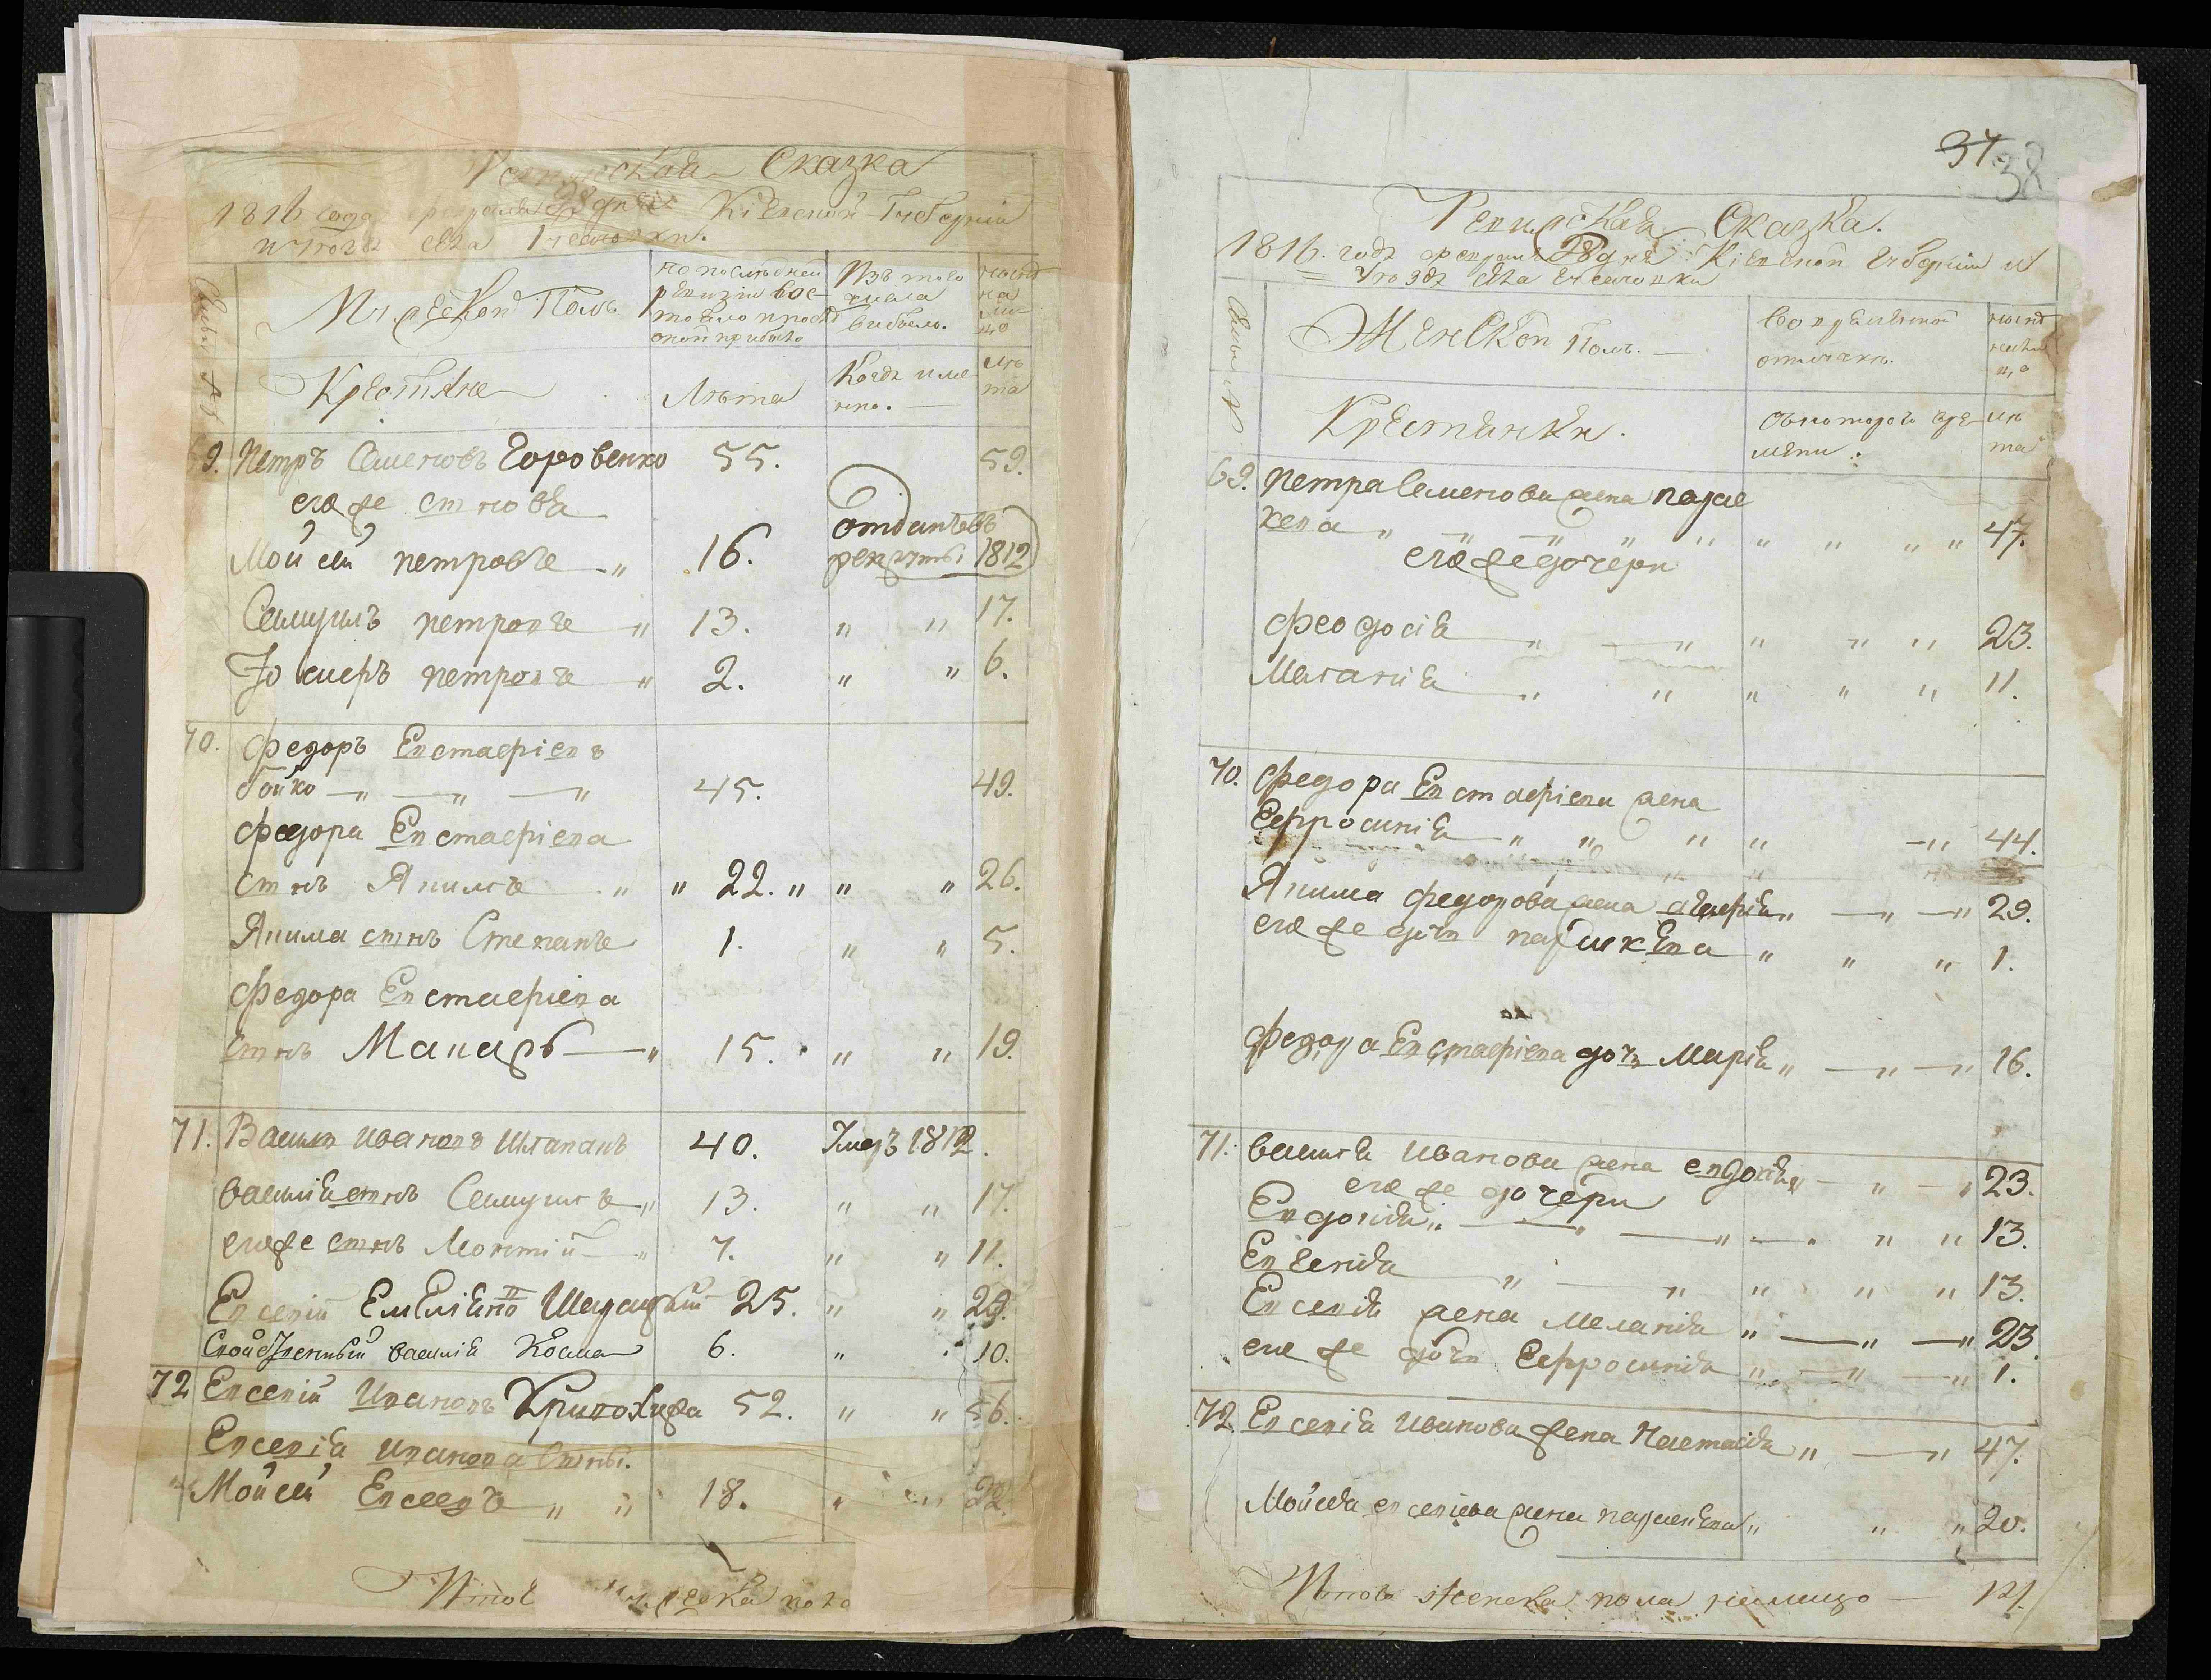 Ревизская Сказка
1816 года февраля 28 дня Кіевской Губерніи
и уезда села
Мужеской Полъ
по последней
ревизіи сос-
тояло и после
оной прибыло
Изъ того
числа
выбыло.
ныне
на
ли-
цо
Крестьяне
Лета
Когда име
нно.
ле
та
9. Петръ Семеновъ Горовенко 55. 59.
его же сыновья
Мойсей петровъ „ 16. отданъ въ
рекруты 1812
Самуилъ петровъ „ 13. „ „ 17.
петровъ „ 2. „ „ 6.
70. Федоръ Евстафіевъ
бойко „ „ „ 45. 49.
Федора Евстафіева
сынъ Якимъ „ „ 22. „ „ „ 26.
Якима сынъ Степанъ 1. „ „ 5.
Федора Евстафіева
сынъ Макаръ „ 15. „ „ 19.
71. Василь Ивановъ 40. Умеръ 1812.
василія сынъ Самуилъ „ 13. „ „ 17.
его же сынъ Моктій „ 7. „ „ 11.
Евсевій Емеліяно 25. „ „ 29.
василія Косма 6. „ 10.
72 Евсевій Ивановъ Кривохижа 52. „ „ 56.
Евсевія иванова сыны.
Мойсей Евсеевъ „ „ 18. „ „ 22.
Итого мужеска пола
37 38
Ревизская Сказка.
1816. года февраля 28 дня Кіевской Губерніи и
Уезда села
Женской Полъ.
Во временной
отлучке.
ныне
на ли
цо
Крестьянки.
Съ котораго вре
мени.
ле
та
69. Петра Семенова жена парас
кева „ „ „ „ „ „ „ „ „ 47.
его же дочери
Феодосія „ „ „ „ „ 23.
Меланія „ „ „ „ „ 11.
70. Федора Евстафіева жена
Ефросинія „ „ „ „ „ 44.
Якима Федорова жена агафія „ „ „ 29.
его же дочь параскева „ „ „ 1.
Федора Евстафіева дочь Марія „ „ „ 16.
71. василя Иванова жена евдокія „ „ „ 23.
его же дочери
Евдокія „ „ „ „ „ „ 13.
Евгенія „ „ „ „ „ 13.
Евсевія жена Меланія „ „ „ 23
его же дочь Ефросинія „ „ „ 1.
72. Евсевія Иванова жена Настасія „ „ 47.
Мойсея евсеіева жена параскева „ „ „ 20.
Итого женска пола налицо 12/.